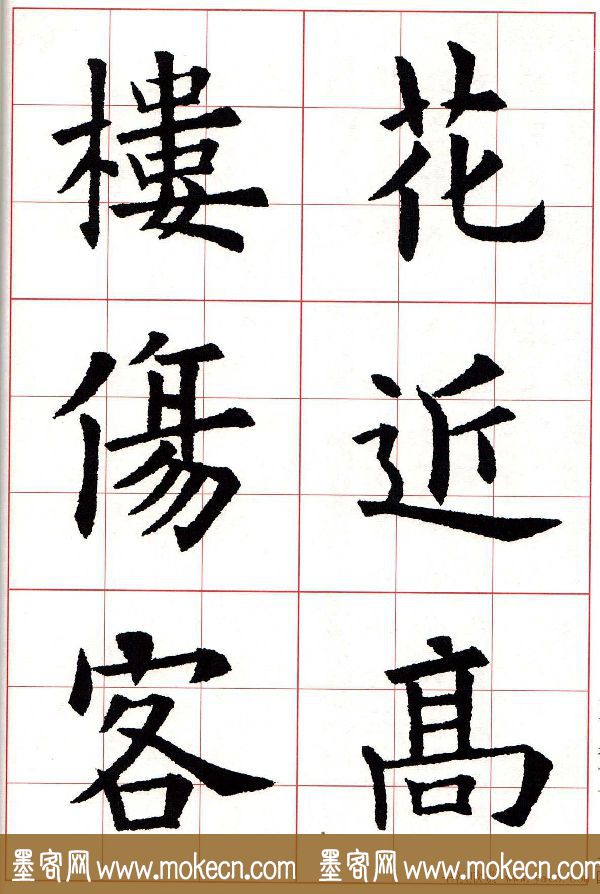 花近髙
樓傷客
墨客网 www.mokecn.com 墨客网 www.mokecn.com